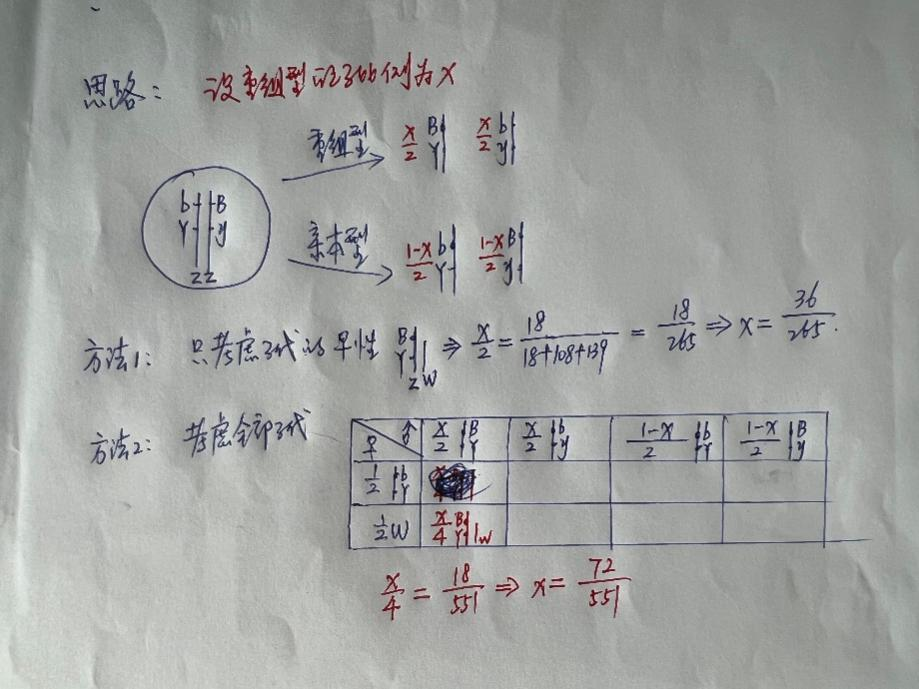 思路: 设重组型的比例为x
重组型 x/2 B Y x/2 b y
b B
Y y
ZZ
亲本型 1-x/2 b Y 1-x/2 B y
方法1: 只考虑子代的早性 B Y ZW ⇒ x/2 = 18/18+108+139 = 18/265 ⇒ x = 36/265.
方法2: 考虑全部子代
♀ ♂ x/2 B Y x/2 b y 1-x/2 b Y 1-x/2 B y
1/2 b Y
1/2 W x/4 B Y W
x/4 = 18/551 ⇒ x = 72/551